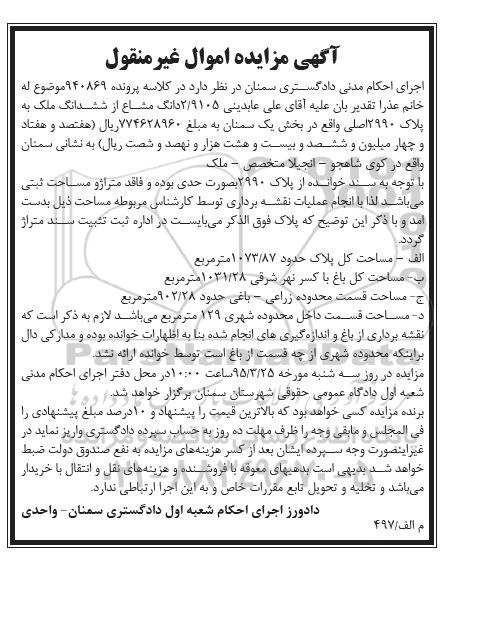 آگهی مزایده اموال غیرمنقول
اجرای احکام مدنی دادگستری سمنان در نظر دارد در کلاسه پرونده ۹۴۰۸۶۹موضوع له
خانم عذرا تقدیر بان علیه آقای علی عابدینی ۲/۹۱۰۵دانگ مشاع از ششدانگ ملک به
پلاک ۲۹۹۰اصلی واقع در بخش یک سمنان به مبلغ ۷۷۴۶۲۸۹۶۰ریال (هفتصد و هفتاد
و چهار میلیون و ششصد و بیست و هشت هزار و نهصد و شصت ریال) به نشانی سمنان
واقع در کوی شاهجو – انجیلا متخصص – ملک
با توجه به سند خوانده از پلاک ۲۹۹۰بصورت حدی بوده و فاقد متراژو مساحت ثبتی
می‌باشد لذا با انجام عملیات نقشه برداری توسط کارشناس مربوطه مساحت ذیل بدست
امد و با ذکر این توضیح که پلاک فوق الذکر می‌بایست در اداره ثبت تثبیت سند متراژ
گردد.
الف – مساحت کل پلاک حدود ۱۰۷۳/۸۷مترمربع
ب– مساحت کل باغ با کسر نهر شرقی ۱۰۳۱/۲۸مترمربع
ج– مساحت قسمت محدوده زراعی – باغی حدود ۹۰۲/۲۸مترمربع
د– مساحت قسمت داخل محدوده شهری ۱۲۹ مترمربع می‌باشد لازم به ذکر است که
نقشه برداری از باغ و اندازه‌گیری های انجام شده بنا به اظهارات خوانده بوده و مدارکی دال
براینکه محدوده شهری از چه قسمت از باغ است توسط خوانده ارائه نشد.
مزایده در روز سه شنبه مورخه ۹۵/۳/۲۵ساعت ۱۰:۰۰در محل دفتر اجرای احکام مدنی
شعبه اول دادگاه عمومی حقوقی شهرستان سمنان برگزار خواهد شد.
برنده مزایده کسی خواهد بود که بالاترین قیمت را پیشنهاد و ۱۰درصد مبلغ پیشنهادی را
فی المجلس و مابقی وجه را ظرف مهلت ده روز به حساب سپرده دادگستری واریز نماید در
غیراینصورت وجه سپرده ایشان بعد از کسر هزینه‌های مزایده به نفع صندوق دولت ضبط
خواهد شد بدیهی است بدهیهای معوقه با فروشنده و هزینه‌های نقل و انتقال با خریدار
می‌باشد و تخلیه و تحویل تابع مقررات خاص و به این اجرا ارتباطی ندارد.
دادورز اجرای احکام شعبه اول دادگستری سمنان– واحدی
م الف/۴۹۷
ParsNamadData